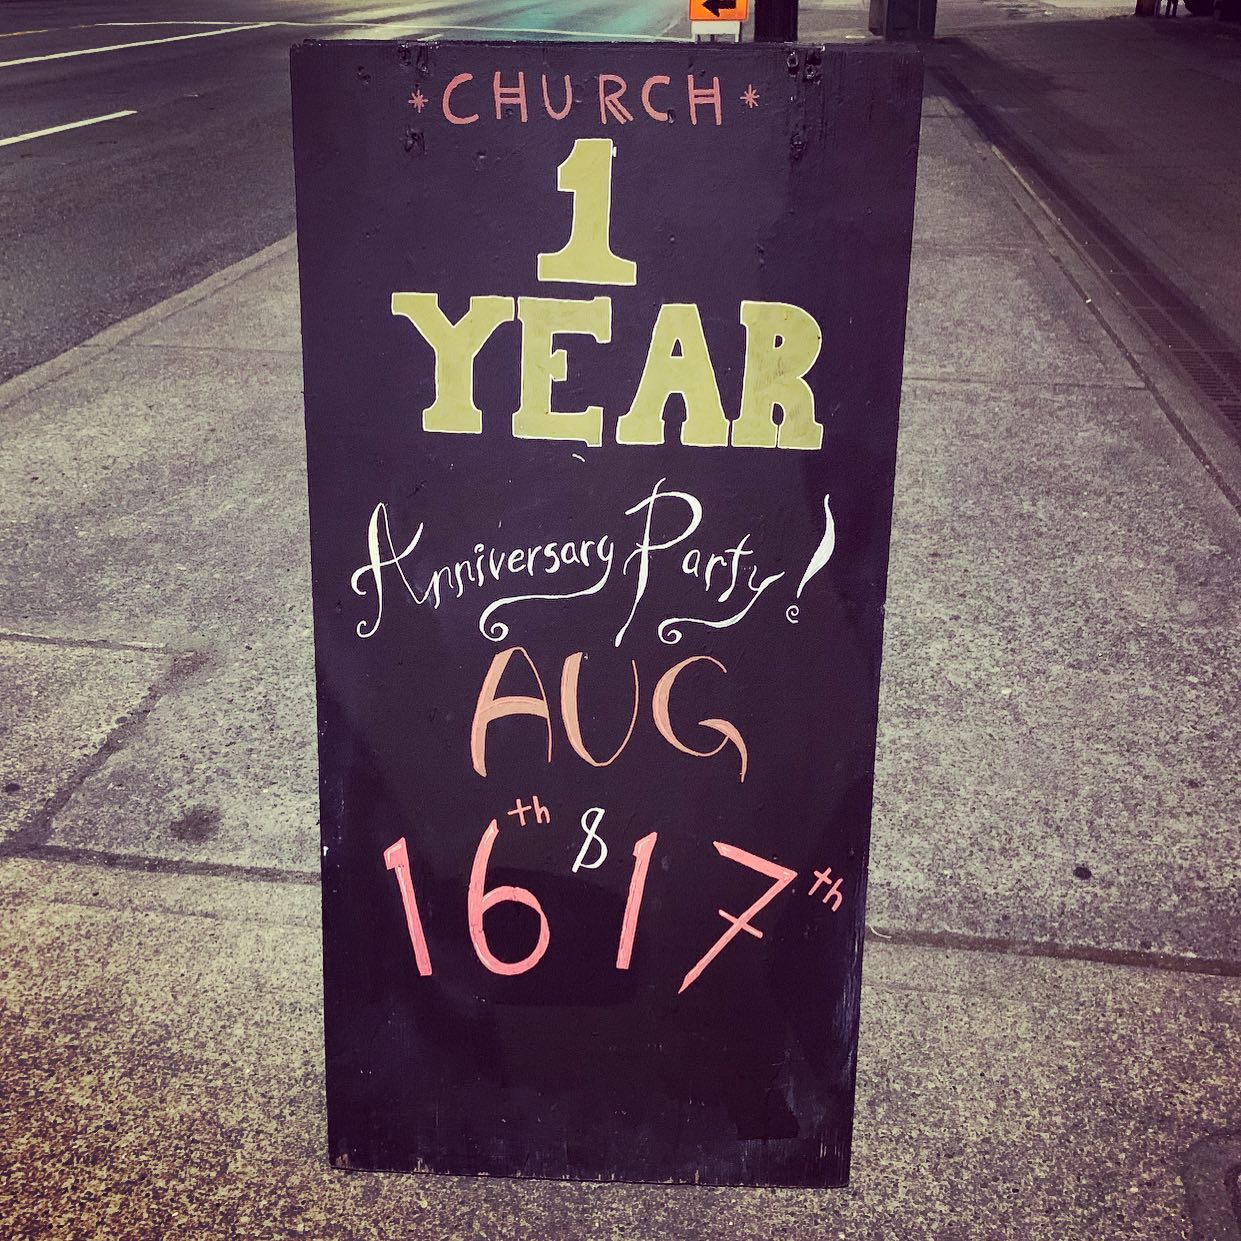 *CHURCH*
1
YEAR
Anniversary Party!
AUG
16th & 17th